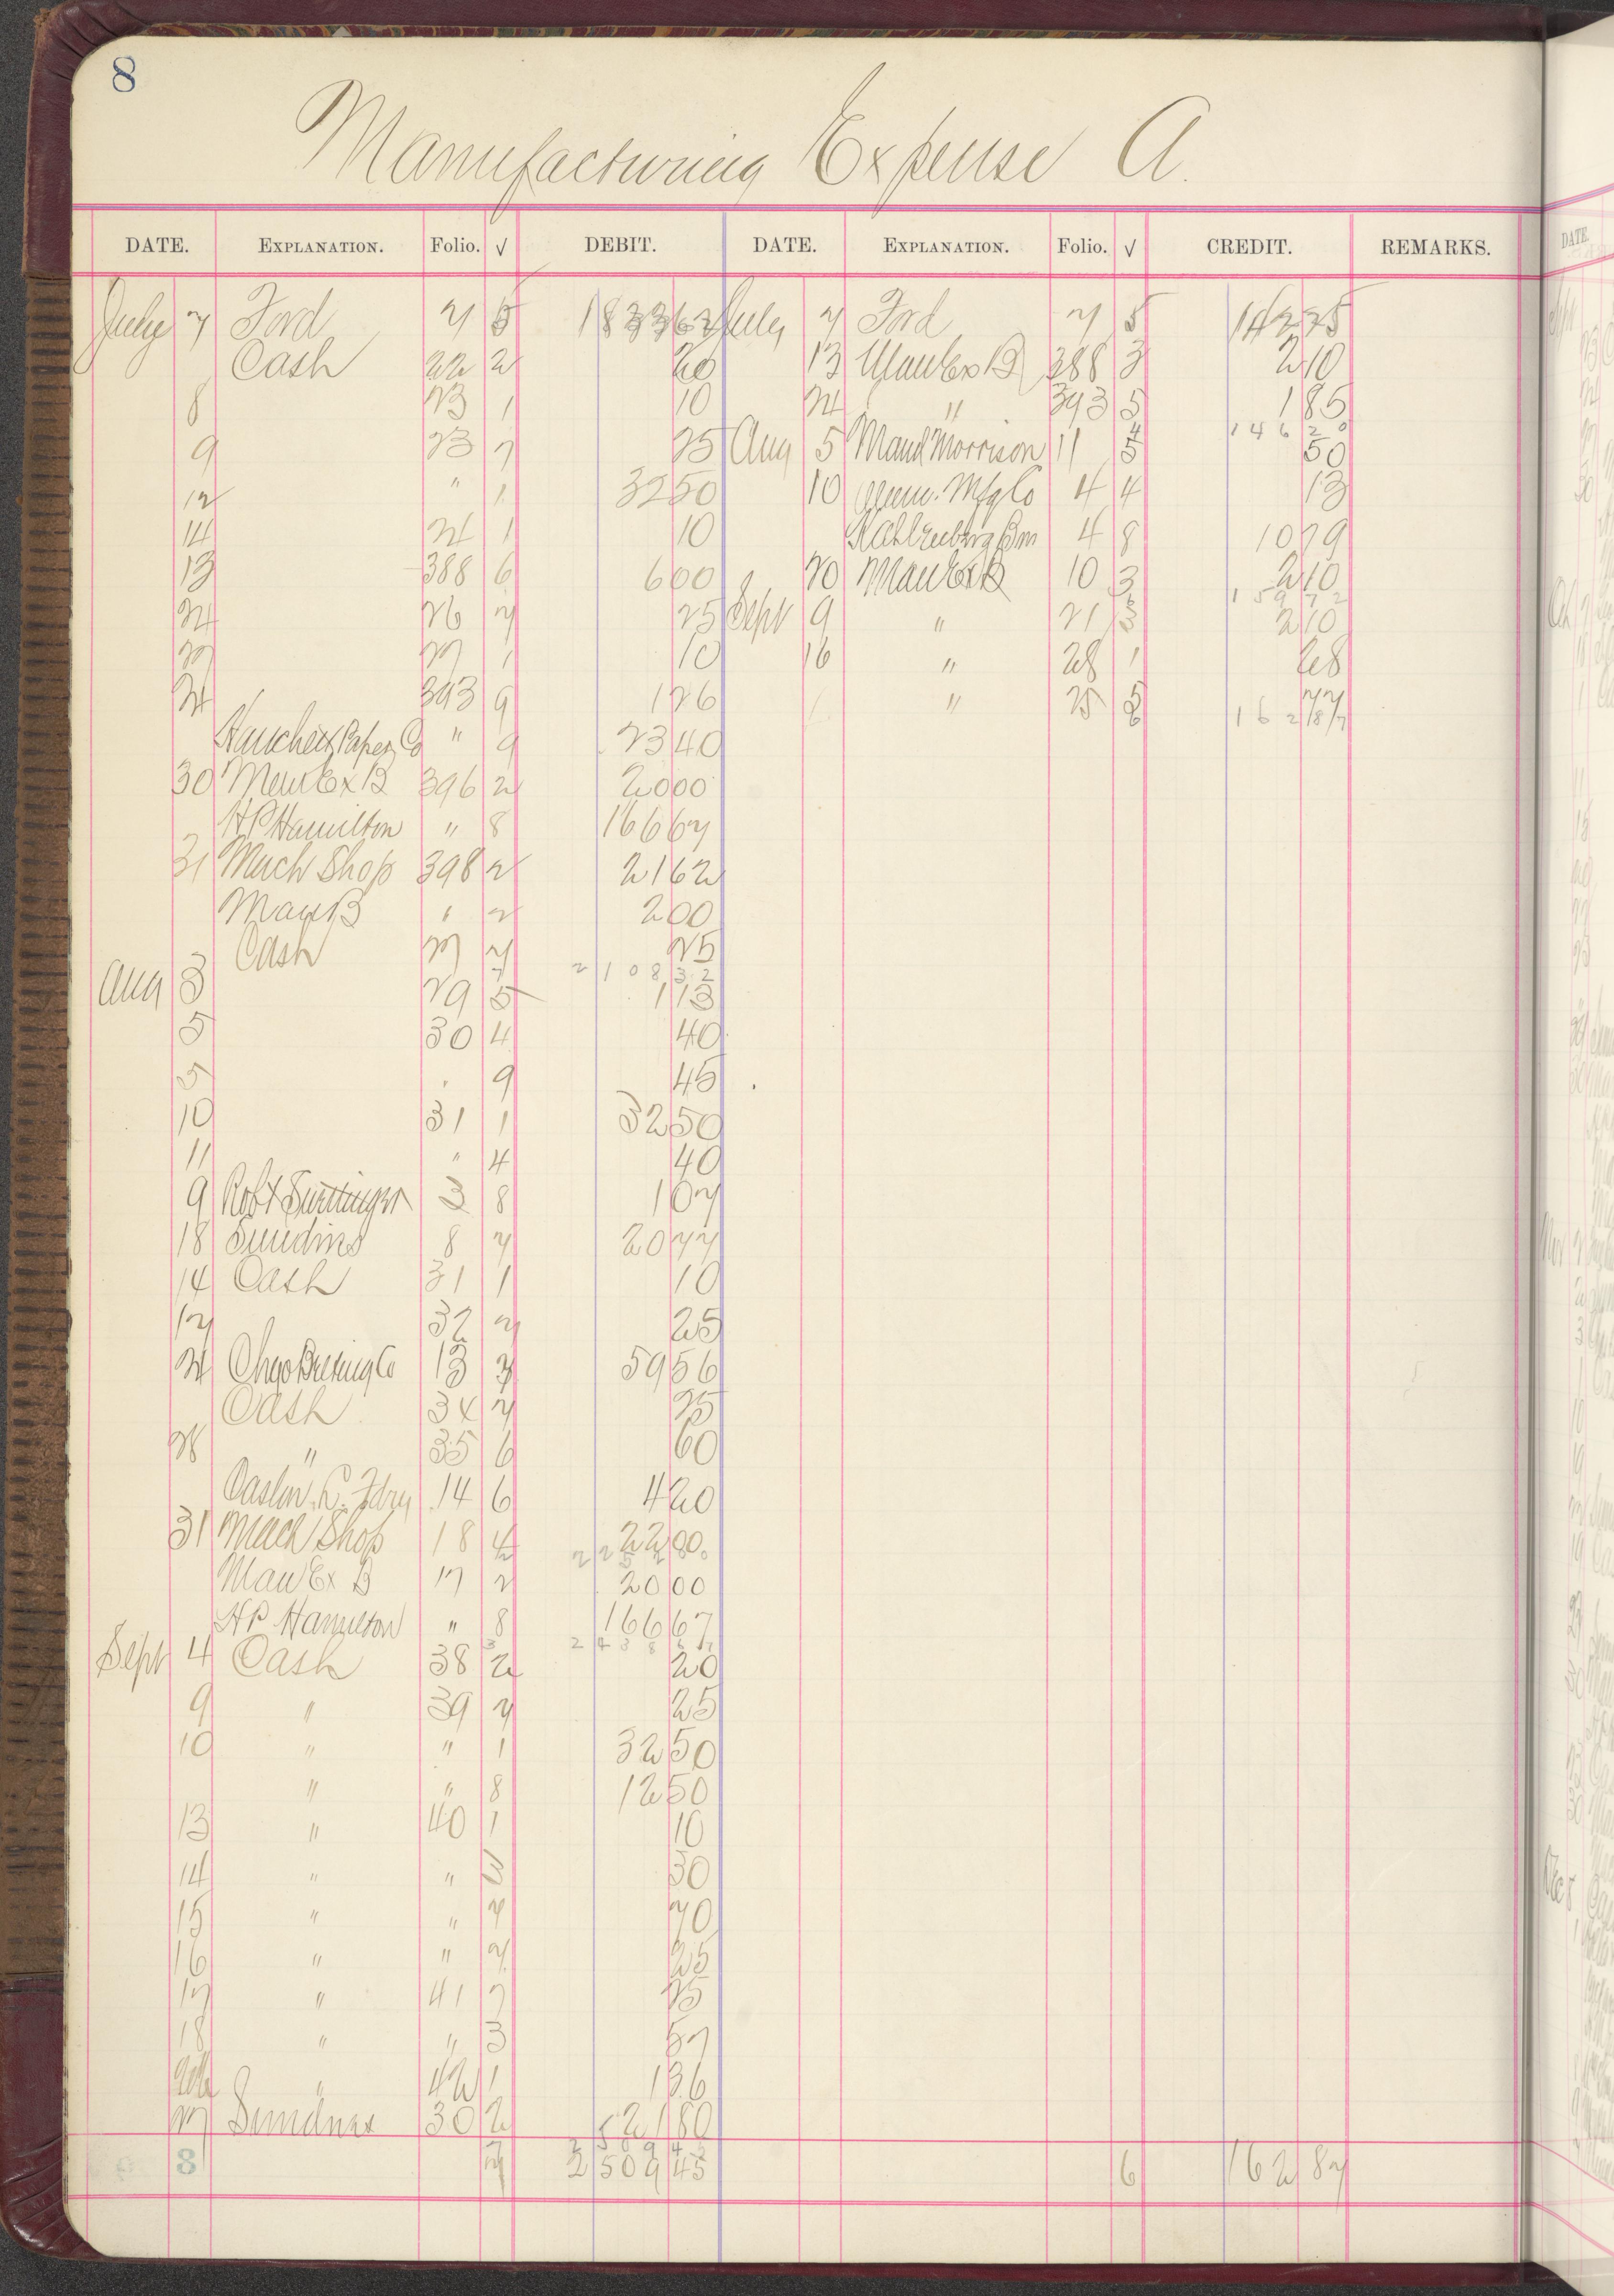 8
Manufacturing Expense A.
DATE. EXPLANATION. Folio. √ DEBIT. DATE. EXPLANATION. Folio. √ CREDIT. REMARKS.
July 7 Ford 7 5 183362 July 7 Ford 7 5 14225
Cash 22 2 20 13 Man Ex B 388 3 210
8 23 1 10 24 " 393 5 185
14620
9 23 7 25 Aug 5 Maud Morrison 11 5 50
12 " 1 3250 10 Mfg Co 4 4 13
14 24 1 10 4 8 1079
13 388 6 600 20 Man Ex B 10 3 210
15972
24 26 7 25 Sept 9 " 21 3 210
27 27 1 10 16 " 28 1 28
24 393 9 126 " 25 5 77
16287
Paper Co " 9 2340
30 Man Ex B 396 2 2000
HP Hamilton " 8 16667
31 Mach Shop 398 2 2162
Man B " 2 200
Cash 27 7 25
210832
Aug 3 29 5 113
5 30 4 40
5 " 9 45
10 31 1 3250
11 " 4 40
9 Robt 3 8 107
18 Sundries 8 7 2077
14 Cash 31 1 10
17 32 7 25
24 Chgo Co 13 3 5956
Cash 34 7 25
28 " 35 6 60
14 6 420
31 Mach Shop 18 4 2200
Man Ex B 17 2 2000
HP Hamilton " 8 16667
Sept 4 Cash 38 2 20
9 " 39 7 25
10 " " 1 3250
" " 8 1250
13 " 40 1 10
14 " " 3 30
15 " " 7 70
16 " " 7 25
17 " 41 7 25
18 " " 3 57
" 42 1 136
27 Sundries 30 2 52180
8 7 250945 6 16287